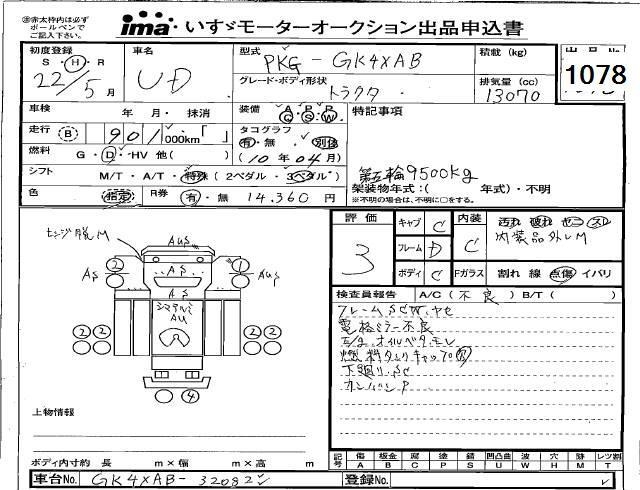 ※赤太枠内は必ず
ボールペンで
ご記入下さい。
ima いすゞモーターオークション出品申込書
初度登録
S・H・R
22/5月
車名
UD
型式
PKG-GK4XAB
グレード・ボディ形状
トラクタ
積載(kg)
排気量(cc)
13070
1078
車検 年・月・抹消
装備 A P R C S W
特記事項
走行 B 901,000km「 」
タコグラフ
有・無 別体
(10年04月)
燃料 G・D・HV 他( )
第五輪9500kg
シフト M/T・A/T・特殊(2ペダル・3ペダル)
架装物年式:( 年式)・不明
※不明の場合は、不明に○をする。
色 指定 R券 有・無 14,360円
評価
3
キャブ C
フレーム D
ボディ C
内装 C
Fガラス
汚れ 破れ セニ スレ
内装品外しM
割れ 線 点傷 イバリ
ヒンジ脱M
AuS
2 AS
AS
AS
1 AuS
AU
2 2
2 2
4
検査員報告 A/C(不良) B/T( )
フレームSCW.ヤセ
電格ミラー不良
E/g.オイルベタ.モレ
燃料タンクキャップ
下廻り.SC
カンバンP
上物情報
ボディ内寸約 長 m×幅 m×高 m
記号 傷 板金 腐 塗 錆 凹凸曲 波 穴 跡 レツ割
A B C P S U W H M T
車台No. GK4XAB-32082
登録No.